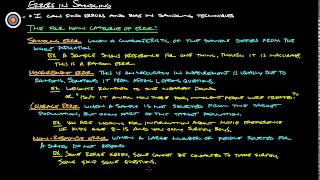 ERRORS IN SAMPLING
• I CAN FIND ERRORS AND BIAS IN SAMPLING TECHNIQUES
THE FOUR MAIN CATEGORIES OF ERROR:
SAMPLING ERROR: WHEN A CHARACTERISTIC OF THE SAMPLE DIFFERS FROM THE
WHOLE POPULATION.
EX A SAMPLE SHOWS PREFERENCE FOR ONE THING, THOUGH IT IS INACCURATE
THIS IS A RANDOM ERROR.
MEASUREMENT ERROR: THIS IS AN INACCURACY IN MEASUREMENT IS USUALLY DUE TO
ROUNDING,
EX WEIGHTS ROUNDED TO THE NEAREST
PEOPLE WERE
COVERAGE ERROR: WHEN A SAMPLE IS NOT SELECTED FROM THE TARGET
POPULATION, BUT ONLY PART OF THE TARGET POPULATION.
EX YOU ARE LOOKING FOR INFORMATION ABOUT MOVIE PREFERENCE
OF KIDS AGE 8-15 AND YOU ONLY SURVEY BOYS.
NON-RESPONSE ERROR: WHEN A LARGE NUMBER OF PEOPLE POLLED FOR
A SURVEY DO NOT RESPOND.
EX SOME REFUSE, SOME CANNOT BE CONTACTED TO TAKE SURVEY,
SOME SKIP SOME QUESTIONS.